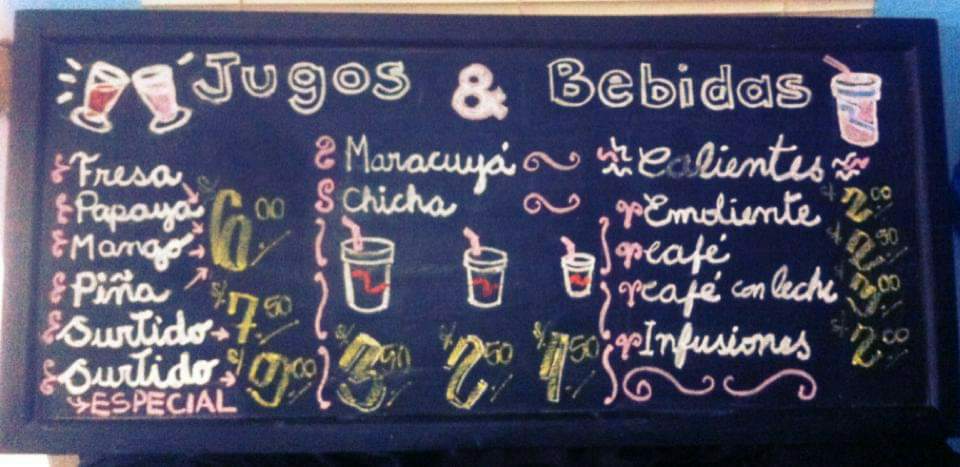 Jugos & Bebidas
Fresa
Papaya
Mango
Piña
S/ 6.00
Surtido S/ 7.50
Surtido S/ 9.00
ESPECIAL
Maracuyá
Chicha
S/ 3.50 S/ 2.50 S/ 1.50
Calientes
Emoliente S/ 2.00
café S/ 2.50
café con leche S/ 3.00
Infusiones S/ 2.00